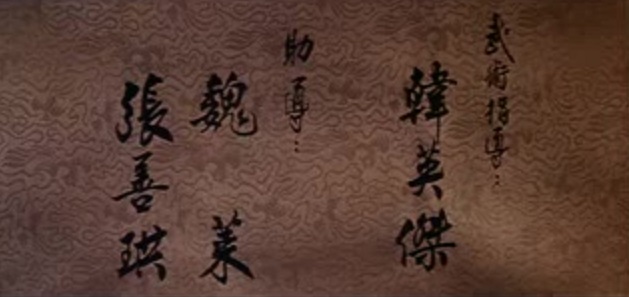 武術指導：
韓英傑
助導：
魏萊
張善琪